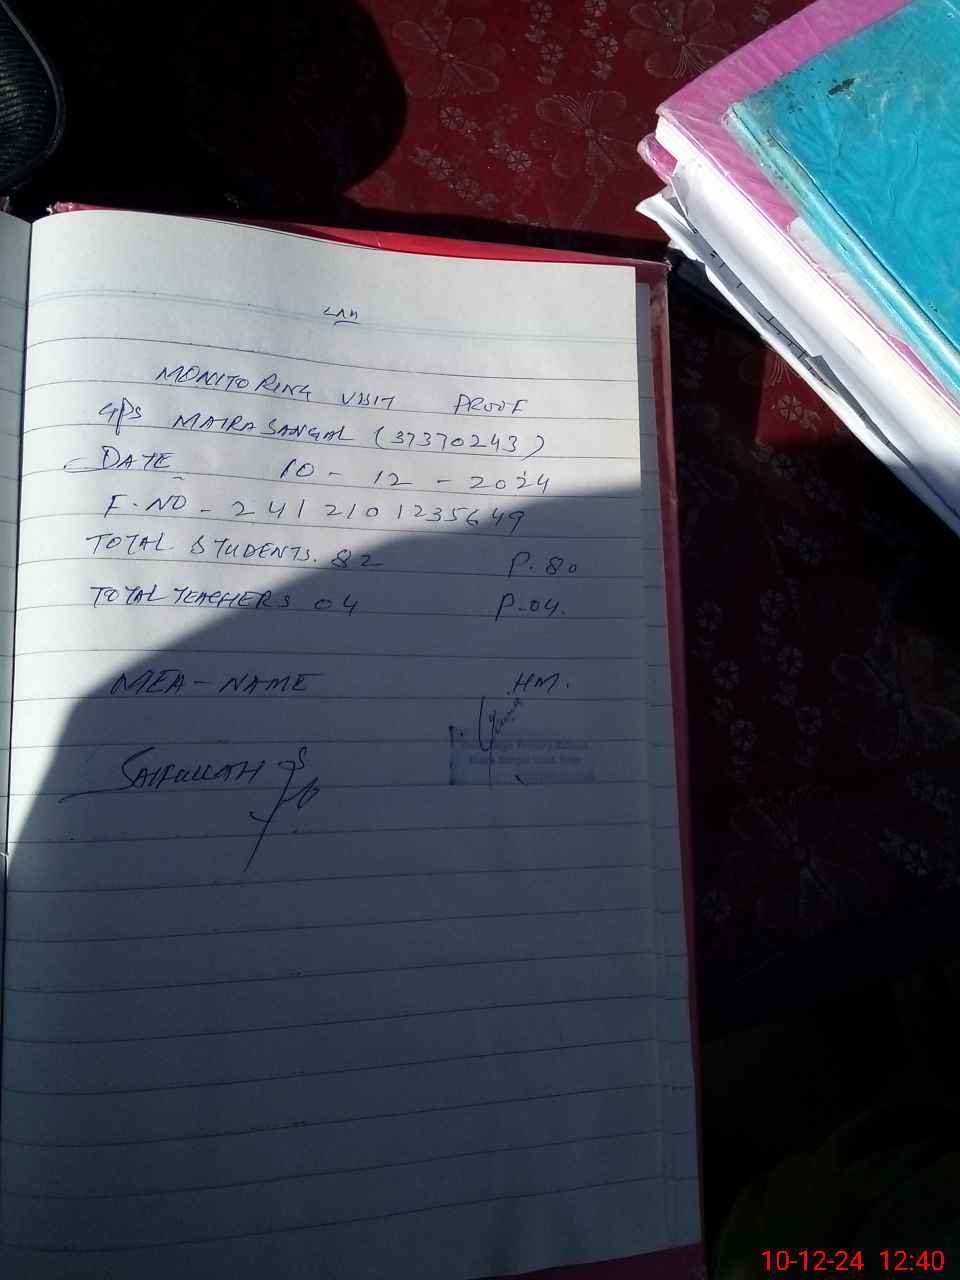 MONITORING VISIT PROOF
GPS MAIRA SANGAL (37370243)
DATE 10 - 12 - 2024
F.NO - 2412101235649
TOTAL STUDENTS. 82 P. 80
TOTAL TEACHERS 04 P-04.
MEA - NAME HM.
SAIFULLAH
Primary School
10-12-24 12:40